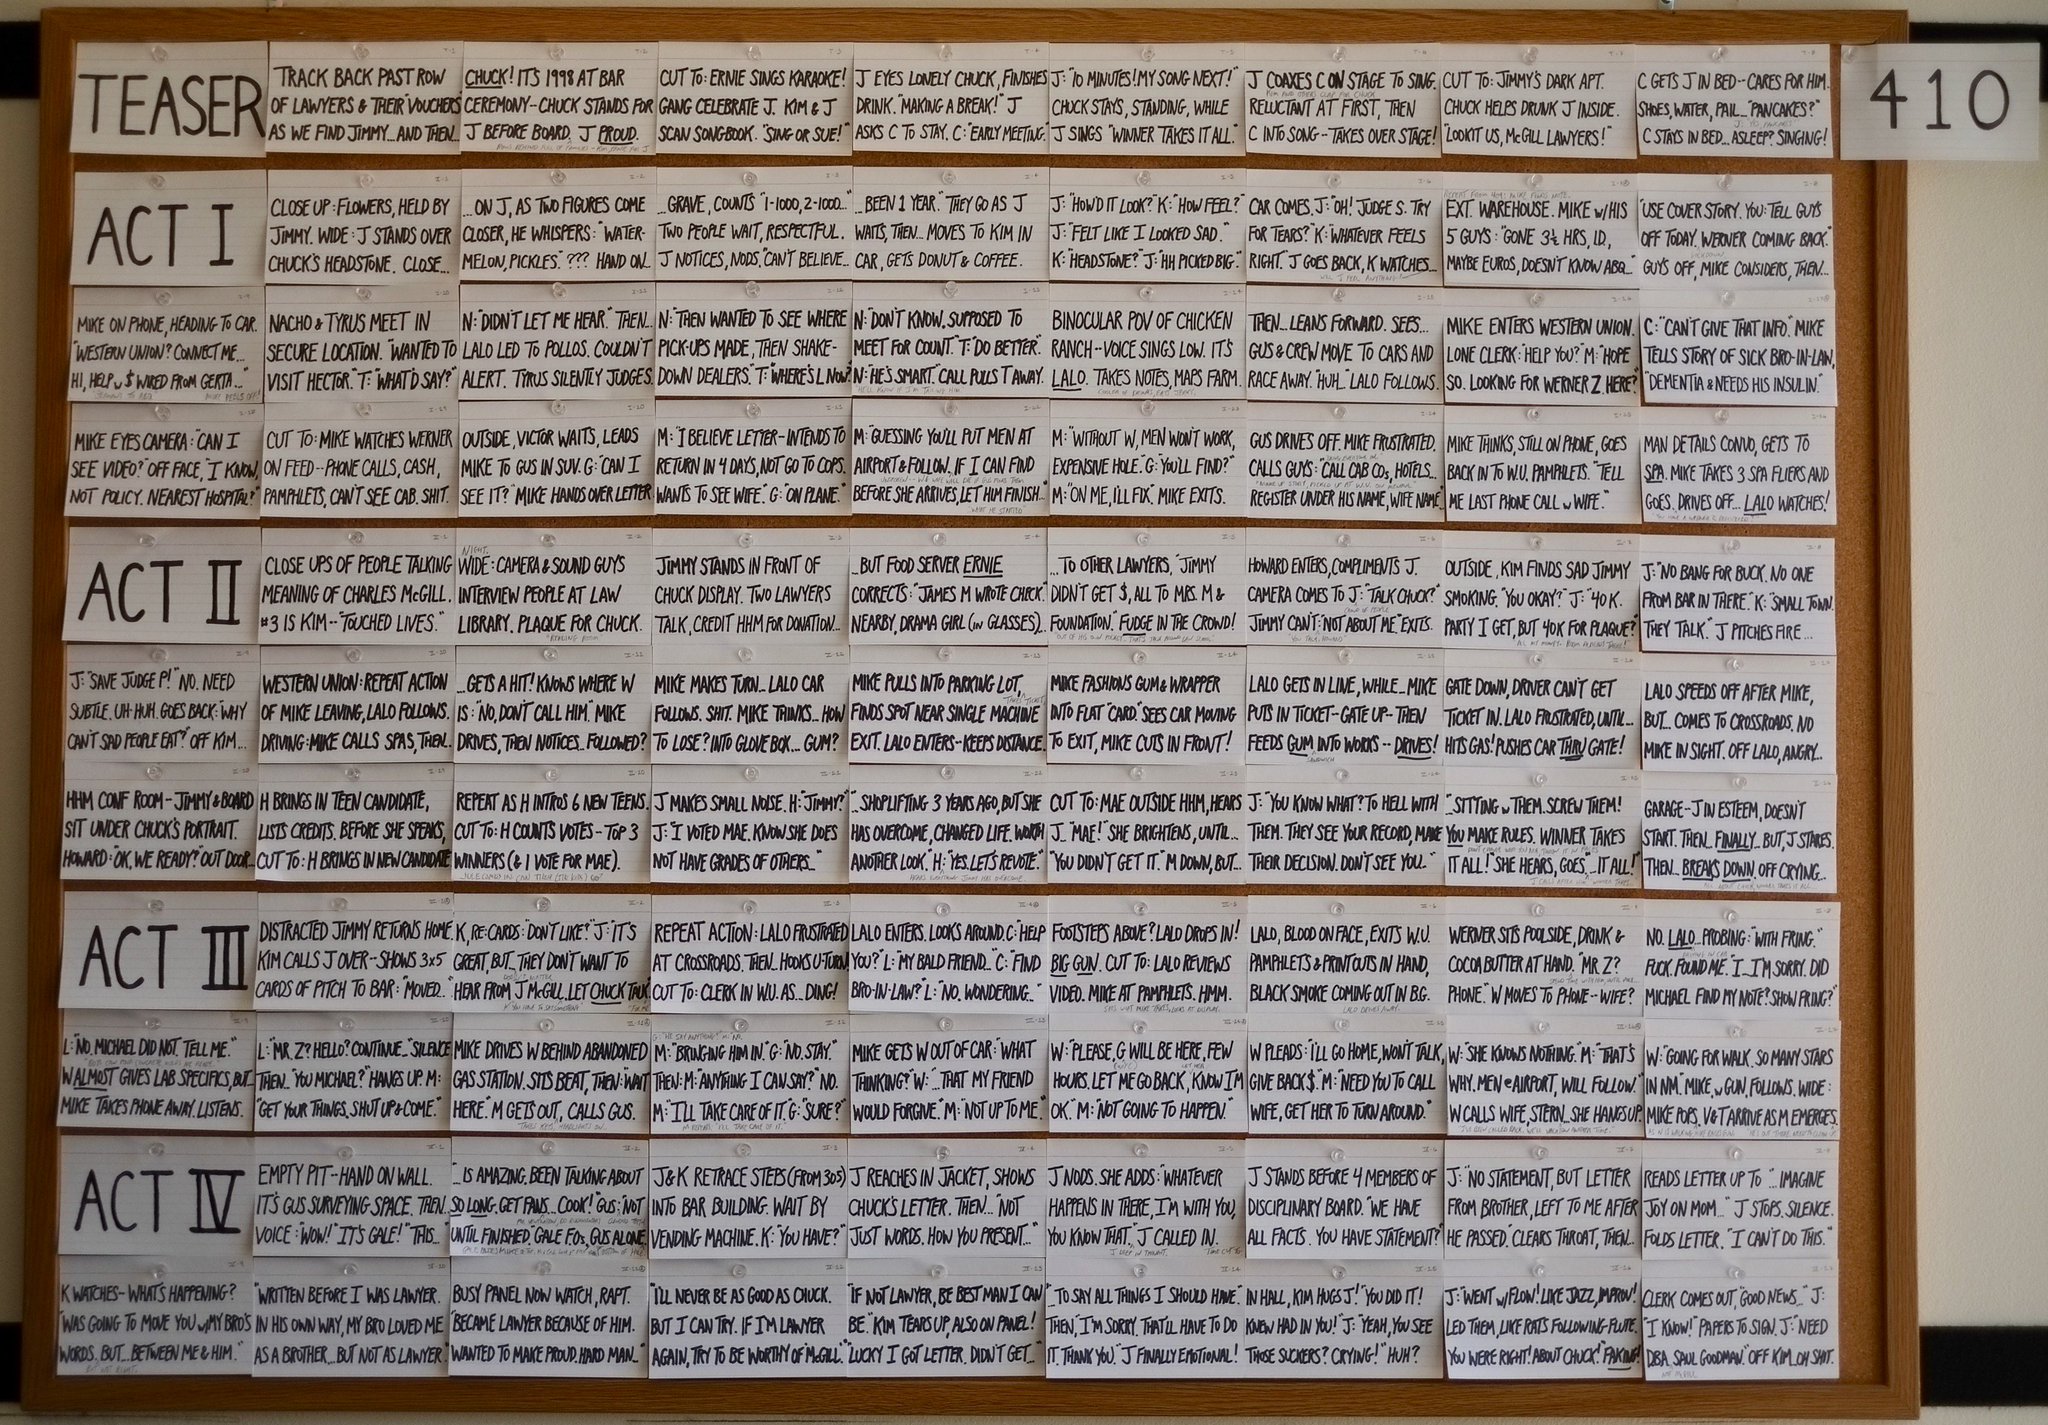 410
TEASER
T-1
TRACK BACK PAST ROW
OF LAWYERS & THEIR "VOUCHERS"
AS WE FIND JIMMY...AND THEN...
T-2
CHUCK! IT'S 1998 AT BAR
CEREMONY--CHUCK STANDS FOR
J BEFORE BOARD. J PROUD.
T-3
CUT TO: ERNIE SINGS KARAOKE!
GANG CELEBRATE J. KIM & J
SCAN SONGBOOK. "SING OR SUE!"
T-4
J EYES LONELY CHUCK, FINISHES
DRINK. "MAKING A BREAK!" J
ASKS C TO STAY. C: "EARLY MEETING."
T-5
J: "10 MINUTES! MY SONG NEXT!"
CHUCK STAYS, STANDING, WHILE
J SINGS "WINNER TAKES IT ALL."
T-6
J COAXES C ON STAGE TO SING.
KIM AND OTHERS CLAP FOR CHUCK
RELUCTANT AT FIRST, THEN
C INTO SONG--TAKES OVER STAGE!
T-7
CUT TO: JIMMY'S DARK APT.
CHUCK HELPS DRUNK J INSIDE.
"LOOKIT US, McGILL LAWYERS!"
T-8
C GETS J IN BED--CARES FOR HIM.
SHOES, WATER, PAIL... "PANCAKES?"
C STAYS IN BED...ASLEEP? SINGING!
ACT I
I-1
CLOSE UP: FLOWERS, HELD BY
JIMMY. WIDE: J STANDS OVER
CHUCK'S HEADSTONE. CLOSE...
I-2
...ON J, AS TWO FIGURES COME
CLOSER, HE WHISPERS: "WATER-
MELON, PICKLES." ??? HAND ON...
I-3
...GRAVE, COUNTS "1-1000, 2-1000..."
TWO PEOPLE WAIT, RESPECTFUL.
J NOTICES, NODS. "CAN'T BELIEVE...
I-4
...BEEN 1 YEAR." THEY GO AS J
WAITS, THEN... MOVES TO KIM IN
CAR, GETS DONUT & COFFEE.
I-5
J: "HOW'D IT LOOK?" K: "HOW FEEL?"
J: "FELT LIKE I LOOKED SAD."
K: "HEADSTONE?" J: "HH PICKED BIG."
I-6
CAR COMES. J: "OH! JUDGE S. TRY
FOR TEARS?" K: "WHATEVER FEELS
RIGHT." J GOES BACK, K WATCHES...
WILL J FEEL ANYTHING?
I-7
EXT. WAREHOUSE. MIKE w/HIS
5 GUYS: "GONE 3½ HRS, I.D,
MAYBE EUROS, DOESN'T KNOW ABQ..."
I-8
"USE COVER STORY. YOU: TELL GUYS
OFF TODAY. WERNER COMING BACK."
GUYS OFF, MIKE CONSIDERS, THEN...
I-9
MIKE ON PHONE, HEADING TO CAR.
"WESTERN UNION? CONNECT ME...
HI, HELP w $ WIRED FROM GERTA..."
MIKE PEELS OFF!
I-10
NACHO & TYRUS MEET IN
SECURE LOCATION. "WANTED TO
VISIT HECTOR." T: "WHAT'D SAY?"
I-11
N: "DIDN'T LET ME HEAR." THEN...
LALO LED TO POLLOS. COULDN'T
ALERT. TYRUS SILENTLY JUDGES.
I-12
N: "THEN WANTED TO SEE WHERE
PICK-UPS MADE, THEN SHAKE-
DOWN DEALERS." T: "WHERE'S L NOW?"
I-13
N: "DON'T KNOW. SUPPOSED TO
MEET FOR COUNT." T: "DO BETTER."
N: "HE'S SMART." CALL PULLS T AWAY.
HE'LL KNOW IF I'M TAILING HIM
I-14
BINOCULAR POV OF CHICKEN
RANCH--VOICE SINGS LOW. IT'S
LALO. TAKES NOTES, MAPS FARM.
COOLER OF DRINKS, EATS JERKY.
I-15
THEN... LEANS FORWARD. SEES...
GUS & CREW MOVE TO CARS AND
RACE AWAY. "HUH..." LALO FOLLOWS.
I-16
MIKE ENTERS WESTERN UNION.
LONE CLERK: "HELP YOU?" M: "HOPE
SO. LOOKING FOR WERNER Z HERE?"
I-17
C: "CAN'T GIVE THAT INFO." MIKE
TELLS STORY OF SICK BRO-IN-LAW,
"DEMENTIA & NEEDS HIS INSULIN."
I-18
MIKE EYES CAMERA: "CAN I
SEE VIDEO?" OFF FACE, "I KNOW,
NOT POLICY. NEAREST HOSPITAL?"
I-19
CUT TO: MIKE WATCHES WERNER
ON FEED--PHONE CALLS, CASH,
PAMPHLETS, CAN'T SEE CAB. SHIT.
I-20
OUTSIDE, VICTOR WAITS, LEADS
MIKE TO GUS IN SUV. G: "CAN I
SEE IT?" MIKE HANDS OVER LETTER
I-21
M: "I BELIEVE LETTER--INTENDS TO
RETURN IN 4 DAYS, NOT GO TO COPS.
WANTS TO SEE WIFE." G: "ON PLANE."
I-22
M: "GUESSING YOU'LL PUT MEN AT
AIRPORT & FOLLOW. IF I CAN FIND
BEFORE SHE ARRIVES, LET HIM FINISH..."
"WHAT HE STARTED"
I-23
M: "WITHOUT W, MEN WON'T WORK,
EXPENSIVE HOLE." G: "YOU'LL FIND?"
M: "ON ME, I'LL FIX." MIKE EXITS.
I-24
GUS DRIVES OFF. MIKE FRUSTRATED.
CALLS GUYS: "CALL CAB COs, HOTELS...
REGISTER UNDER HIS NAME, WIFE NAME."
I-25
MIKE THINKS, STILL ON PHONE, GOES
BACK IN TO W.U. PAMPHLETS. "TELL
ME LAST PHONE CALL w WIFE."
I-26
MAN DETAILS CONVO, GETS TO
SPA. MIKE TAKES 3 SPA FLIERS AND
GOES. DRIVES OFF... LALO WATCHES!
ACT II
II-1
CLOSE UPS OF PEOPLE TALKING
MEANING OF CHARLES McGILL.
#3 IS KIM--"TOUCHED LIVES."
II-2
NIGHT.
WIDE: CAMERA & SOUND GUYS
INTERVIEW PEOPLE AT LAW
LIBRARY. PLAQUE FOR CHUCK.
"READING ROOM"
II-3
JIMMY STANDS IN FRONT OF
CHUCK DISPLAY. TWO LAWYERS
TALK, CREDIT HHM FOR DONATION...
II-4
...BUT FOOD SERVER ERNIE
CORRECTS: "JAMES M WROTE CHECK."
NEARBY, DRAMA GIRL (IN GLASSES)...
II-5
...TO OTHER LAWYERS, "JIMMY
DIDN'T GET $, ALL TO MRS. M &
FOUNDATION." FUDGE IN THE CROWD!
II-6
HOWARD ENTERS, COMPLIMENTS J.
CAMERA COMES TO J: "TALK CHUCK?"
CROWD OF PEOPLE
JIMMY CAN'T: "NOT ABOUT ME." EXITS.
"YOU TALK, HOWARD."
II-7
OUTSIDE, KIM FINDS SAD JIMMY
SMOKING. "YOU OKAY?" J: "40 K.
PARTY I GET, BUT 40K FOR PLAQUE?"
II-8
J: "NO BANG FOR BUCK. NO ONE
FROM BAR IN THERE." K: "SMALL TOWN.
THEY TALK." J PITCHES FIRE...
II-9
J: "SAVE JUDGE P!" NO. NEED
SUBTLE. UH-HUH. GOES BACK: "WHY
CAN'T SAD PEOPLE EAT?" OFF KIM...
II-10
WESTERN UNION: REPEAT ACTION
OF MIKE LEAVING, LALO FOLLOWS.
DRIVING: MIKE CALLS SPAS, THEN...
II-11
...GETS A HIT! KNOWS WHERE W
IS: "NO, DON'T CALL HIM." MIKE
DRIVES, THEN NOTICES...FOLLOWED?
II-12
MIKE MAKES TURN... LALO CAR
FOLLOWS. SHIT. MIKE THINKS... HOW
TO LOSE? INTO GLOVE BOX... GUM?
II-13
MIKE PULLS INTO PARKING LOT,
TAKES TICKET
FINDS SPOT NEAR SINGLE MACHINE
EXIT. LALO ENTERS--KEEPS DISTANCE.
II-14
MIKE FASHIONS GUM & WRAPPER
INTO FLAT "CARD." SEES CAR MOVING
TO EXIT, MIKE CUTS IN FRONT!
II-15
LALO GETS IN LINE, WHILE... MIKE
PUTS IN TICKET--GATE UP--THEN
FEEDS GUM INTO WORKS--DRIVES!
SANDWICH
II-16
GATE DOWN, DRIVER CAN'T GET
TICKET IN. LALO FRUSTRATED, UNTIL...
HITS GAS! PUSHES CAR THRU GATE!
II-17
LALO SPEEDS OFF AFTER MIKE,
BUT... COMES TO CROSSROADS. NO
MIKE IN SIGHT. OFF LALO, ANGRY...
II-18
HHM CONF ROOM--JIMMY & BOARD
SIT UNDER CHUCK'S PORTRAIT.
HOWARD: "OK, WE READY?" OUT DOOR...
II-19
H BRINGS IN TEEN CANDIDATE,
LISTS CREDITS. BEFORE SHE SPEAKS,
CUT TO: H BRINGS IN NEW CANDIDATE
II-20
REPEAT AS H INTROS 6 NEW TEENS.
CUT TO: H COUNTS VOTES--TOP 3
WINNERS (& 1 VOTE FOR MAE).
II-21
J MAKES SMALL NOISE. H: "JIMMY?"
J: "I VOTED MAE. KNOW SHE DOES
NOT HAVE GRADES OF OTHERS..."
II-22
"...SHOPLIFTING 3 YEARS AGO, BUT SHE
HAS OVERCOME, CHANGED LIFE. WORTH
ANOTHER LOOK." H: "YES. LET'S REVOTE."
II-23
CUT TO: MAE OUTSIDE HHM, HEARS
J... "MAE!" SHE BRIGHTENS, UNTIL...
"YOU DIDN'T GET IT." M DOWN, BUT...
II-24
J: "YOU KNOW WHAT? TO HELL WITH
THEM. THEY SEE YOUR RECORD, MAKE
THEIR DECISION. DON'T SEE YOU..."
II-25
"...SITTING w THEM. SCREW THEM!
YOU MAKE RULES. WINNER TAKES
IT ALL!" SHE HEARS, GOES "...IT ALL!"
II-26
GARAGE--J IN ESTEEM, DOESN'T
START. THEN... FINALLY... BUT, J STARES.
THEN... BREAKS DOWN. OFF CRYING...
ACT III
III-1
DISTRACTED JIMMY RETURNS HOME.
KIM CALLS J OVER--SHOWS 3x5
CARDS OF PITCH TO BAR: "MOVED..."
III-2
K, RE: CARDS: "DON'T LIKE?" J: "IT'S
GREAT, BUT... THEY DON'T WANT TO
HEAR FROM J McGILL. LET CHUCK TALK
FOR ME
K: YOU HAVE TO SAY SOMETHING
III-3
REPEAT ACTION: LALO FRUSTRATED
AT CROSSROADS. THEN... HOOKS U-TURN.
CUT TO: CLERK IN W.U. AS... DING!
III-4
LALO ENTERS. LOOKS AROUND. C: "HELP
YOU?" L: "MY BALD FRIEND..." C: "FIND
BRO-IN-LAW?" L: "NO. WONDERING..."
III-5
FOOTSTEPS ABOVE? LALO DROPS IN!
BIG GUN. CUT TO: LALO REVIEWS
VIDEO. MIKE AT PAMPHLETS. HMM.
III-6
LALO, BLOOD ON FACE, EXITS W.U.
PAMPHLETS & PRINTOUTS IN HAND,
BLACK SMOKE COMING OUT IN B.G.
LALO DRIVES AWAY.
III-7
WERNER SITS POOLSIDE, DRINK &
COCOA BUTTER AT HAND. "MR. Z?
PHONE." W MOVES TO PHONE--WIFE?
III-8
NO. LALO...PROBING: "WITH FRING."
DRIVING IN CAR
FUCK. FOUND ME. "I...I'M SORRY. DID
MICHAEL FIND MY NOTE? SHOW FRING?"
III-9
L: "NO, MICHAEL DID NOT TELL ME."
W ALMOST GIVES LAB SPECIFICS, BUT...
MIKE TAKES PHONE AWAY. LISTENS.
III-10
L: "MR. Z? HELLO? CONTINUE..." SILENCE
THEN... "YOU MICHAEL?" HANGS UP. M:
"GET YOUR THINGS. SHUT UP & COME."
III-11
MIKE DRIVES W BEHIND ABANDONED
GAS STATION. SITS BEAT, THEN: "WAIT
HERE." M GETS OUT, CALLS GUS.
TAKES KEYS, HEADLIGHTS ON...
III-12
G: "HE SAY ANYTHING?" M: "NO.
M: "BRINGING HIM IN." G: "NO. STAY."
THEN: M: "ANYTHING I CAN SAY?" NO.
M: "I'LL TAKE CARE OF IT." G: "SURE?"
M REPEATS: "I'LL TAKE CARE OF IT."
III-13
MIKE GETS W OUT OF CAR: "WHAT
THINKING?" W: "...THAT MY FRIEND
WOULD FORGIVE." M: "NOT UP TO ME."
III-14
W: "PLEASE, G WILL BE HERE, FEW
HOURS. LET ME GO BACK, KNOW I'M
OK." M: "NOT GOING TO HAPPEN."
III-15
W PLEADS: "I'LL GO HOME, WON'T TALK,
GIVE BACK $." M: "NEED YOU TO CALL
WIFE, GET HER TO TURN AROUND."
III-16
W: "SHE KNOWS NOTHING." M: "THAT'S
WHY. MEN @ AIRPORT, WILL FOLLOW."
W CALLS WIFE, STERN... SHE HANGS UP.
III-17
W: "GOING FOR WALK. SO MANY STARS
IN NM." MIKE, w GUN, FOLLOWS. WIDE:
MIKE POPS. V & T ARRIVE AS M EMERGES.
ACT IV
IV-1
EMPTY PIT--HAND ON WALL.
IT'S GUS SURVEYING SPACE. THEN
VOICE: "WOW! IT'S GALE! "THIS...
IV-2
"...IS AMAZING. BEEN TALKING ABOUT
SO LONG. GET FANS... COOK!" GUS: "NOT
UNTIL FINISHED." GALE F.O.s, GUS ALONE.
IV-3
J & K RETRACE STEPS (FROM 305)
INTO BAR BUILDING. WAIT BY
VENDING MACHINE. K: "YOU HAVE?"
IV-4
J REACHES IN JACKET, SHOWS
CHUCK'S LETTER. THEN... "NOT
JUST WORDS. HOW YOU PRESENT..."
IV-5
J NODS. SHE ADDS: "WHATEVER
HAPPENS IN THERE, I'M WITH YOU,
YOU KNOW THAT." J CALLED IN.
J DEEP IN THOUGHT.
IV-6
J STANDS BEFORE 4 MEMBERS OF
DISCIPLINARY BOARD. "WE HAVE
ALL FACTS. YOU HAVE STATEMENT?"
IV-7
J: "NO STATEMENT, BUT LETTER
FROM BROTHER, LEFT TO ME AFTER
HE PASSED." CLEARS THROAT, THEN...
IV-8
READS LETTER UP TO "...IMAGINE
JOY ON MOM..." J STOPS. SILENCE.
FOLDS LETTER. "I CAN'T DO THIS."
IV-9
K WATCHES--WHAT'S HAPPENING?
"WAS GOING TO MOVE YOU w/MY BRO'S
WORDS. BUT...BETWEEN ME & HIM."
IV-10
"WRITTEN BEFORE I WAS LAWYER.
IN HIS OWN WAY, MY BRO LOVED ME
AS A BROTHER...BUT NOT AS LAWYER."
IV-11
BUSY PANEL NOW WATCH, RAPT.
"BECAME LAWYER BECAUSE OF HIM.
WANTED TO MAKE PROUD. HARD MAN..."
IV-12
"I'LL NEVER BE AS GOOD AS CHUCK.
BUT I CAN TRY. IF I'M LAWYER
AGAIN, TRY TO BE WORTHY OF 'McGILL.'
IV-13
"IF NOT LAWYER, BE BEST MAN I CAN
BE." KIM TEARS UP, ALSO ON PANEL!
LUCKY I GOT LETTER. DIDN'T GET..."
IV-14
"...TO SAY ALL THINGS I SHOULD HAVE."
THEN, "I'M SORRY. THAT'LL HAVE TO DO
IT. THANK YOU." J FINALLY EMOTIONAL!
IV-15
IN HALL, KIM HUGS J! "YOU DID IT!
KNEW HAD IN YOU!" J: "YEAH, YOU SEE
THOSE SUCKERS? CRYING!" HUH?
IV-16
J: "WENT w/FLOW! LIKE JAZZ, IMPROV!
LED THEM, LIKE RATS FOLLOWING FLUTE.
YOU WERE RIGHT! ABOUT CHUCK!" FAKING!
IV-17
CLERK COMES OUT, "GOOD NEWS..." J:
"I KNOW!" PAPERS TO SIGN. J: "NEED
DBA. SAUL GOODMAN." OFF KIM...OH SHIT.
NOT McGILL